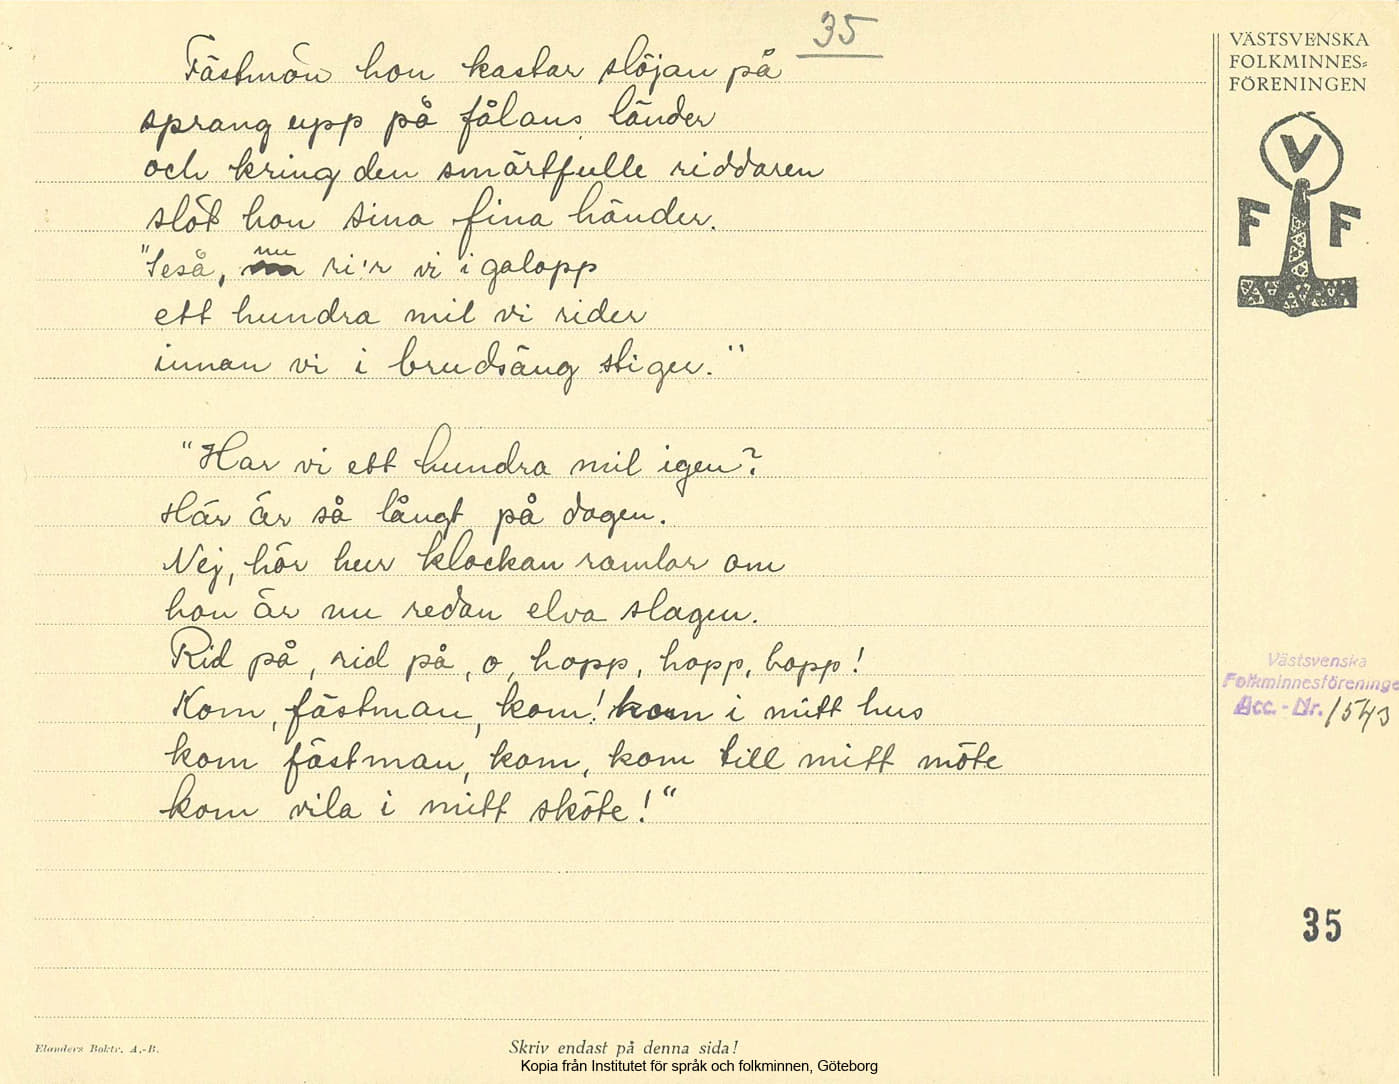 35
Fästmön hon kastar slöjan på
sprang upp på fålans länder
och kring den smärtfulle riddaren
slöt hon sina fina händer.
"Seså, nu ri'r vi i galopp
ett hundra mil vi rider
innan vi i brudsäng stiger."
"Har vi ett hundra mil igen?
Här är så långt på dagen.
Nej, hör hur klockan ramlar om
hon är nu redan elva slagen.
Rid på, rid på, o, hopp, hopp, hopp!
Kom, fästman, kom! kom i mitt hus
kom fästman, kom, kom till mitt möte
kom vila i mitt sköte!"
VÄSTSVENSKA
FOLKMINNES=
FÖRENINGEN
V
F F
Västsvenska
Folkminnesföreninge
Acc.-Nr. 1543
35
Elanders Boktr. A.-B.
Skriv endast på denna sida!
Kopia från Institutet för språk och folkminnen, Göteborg